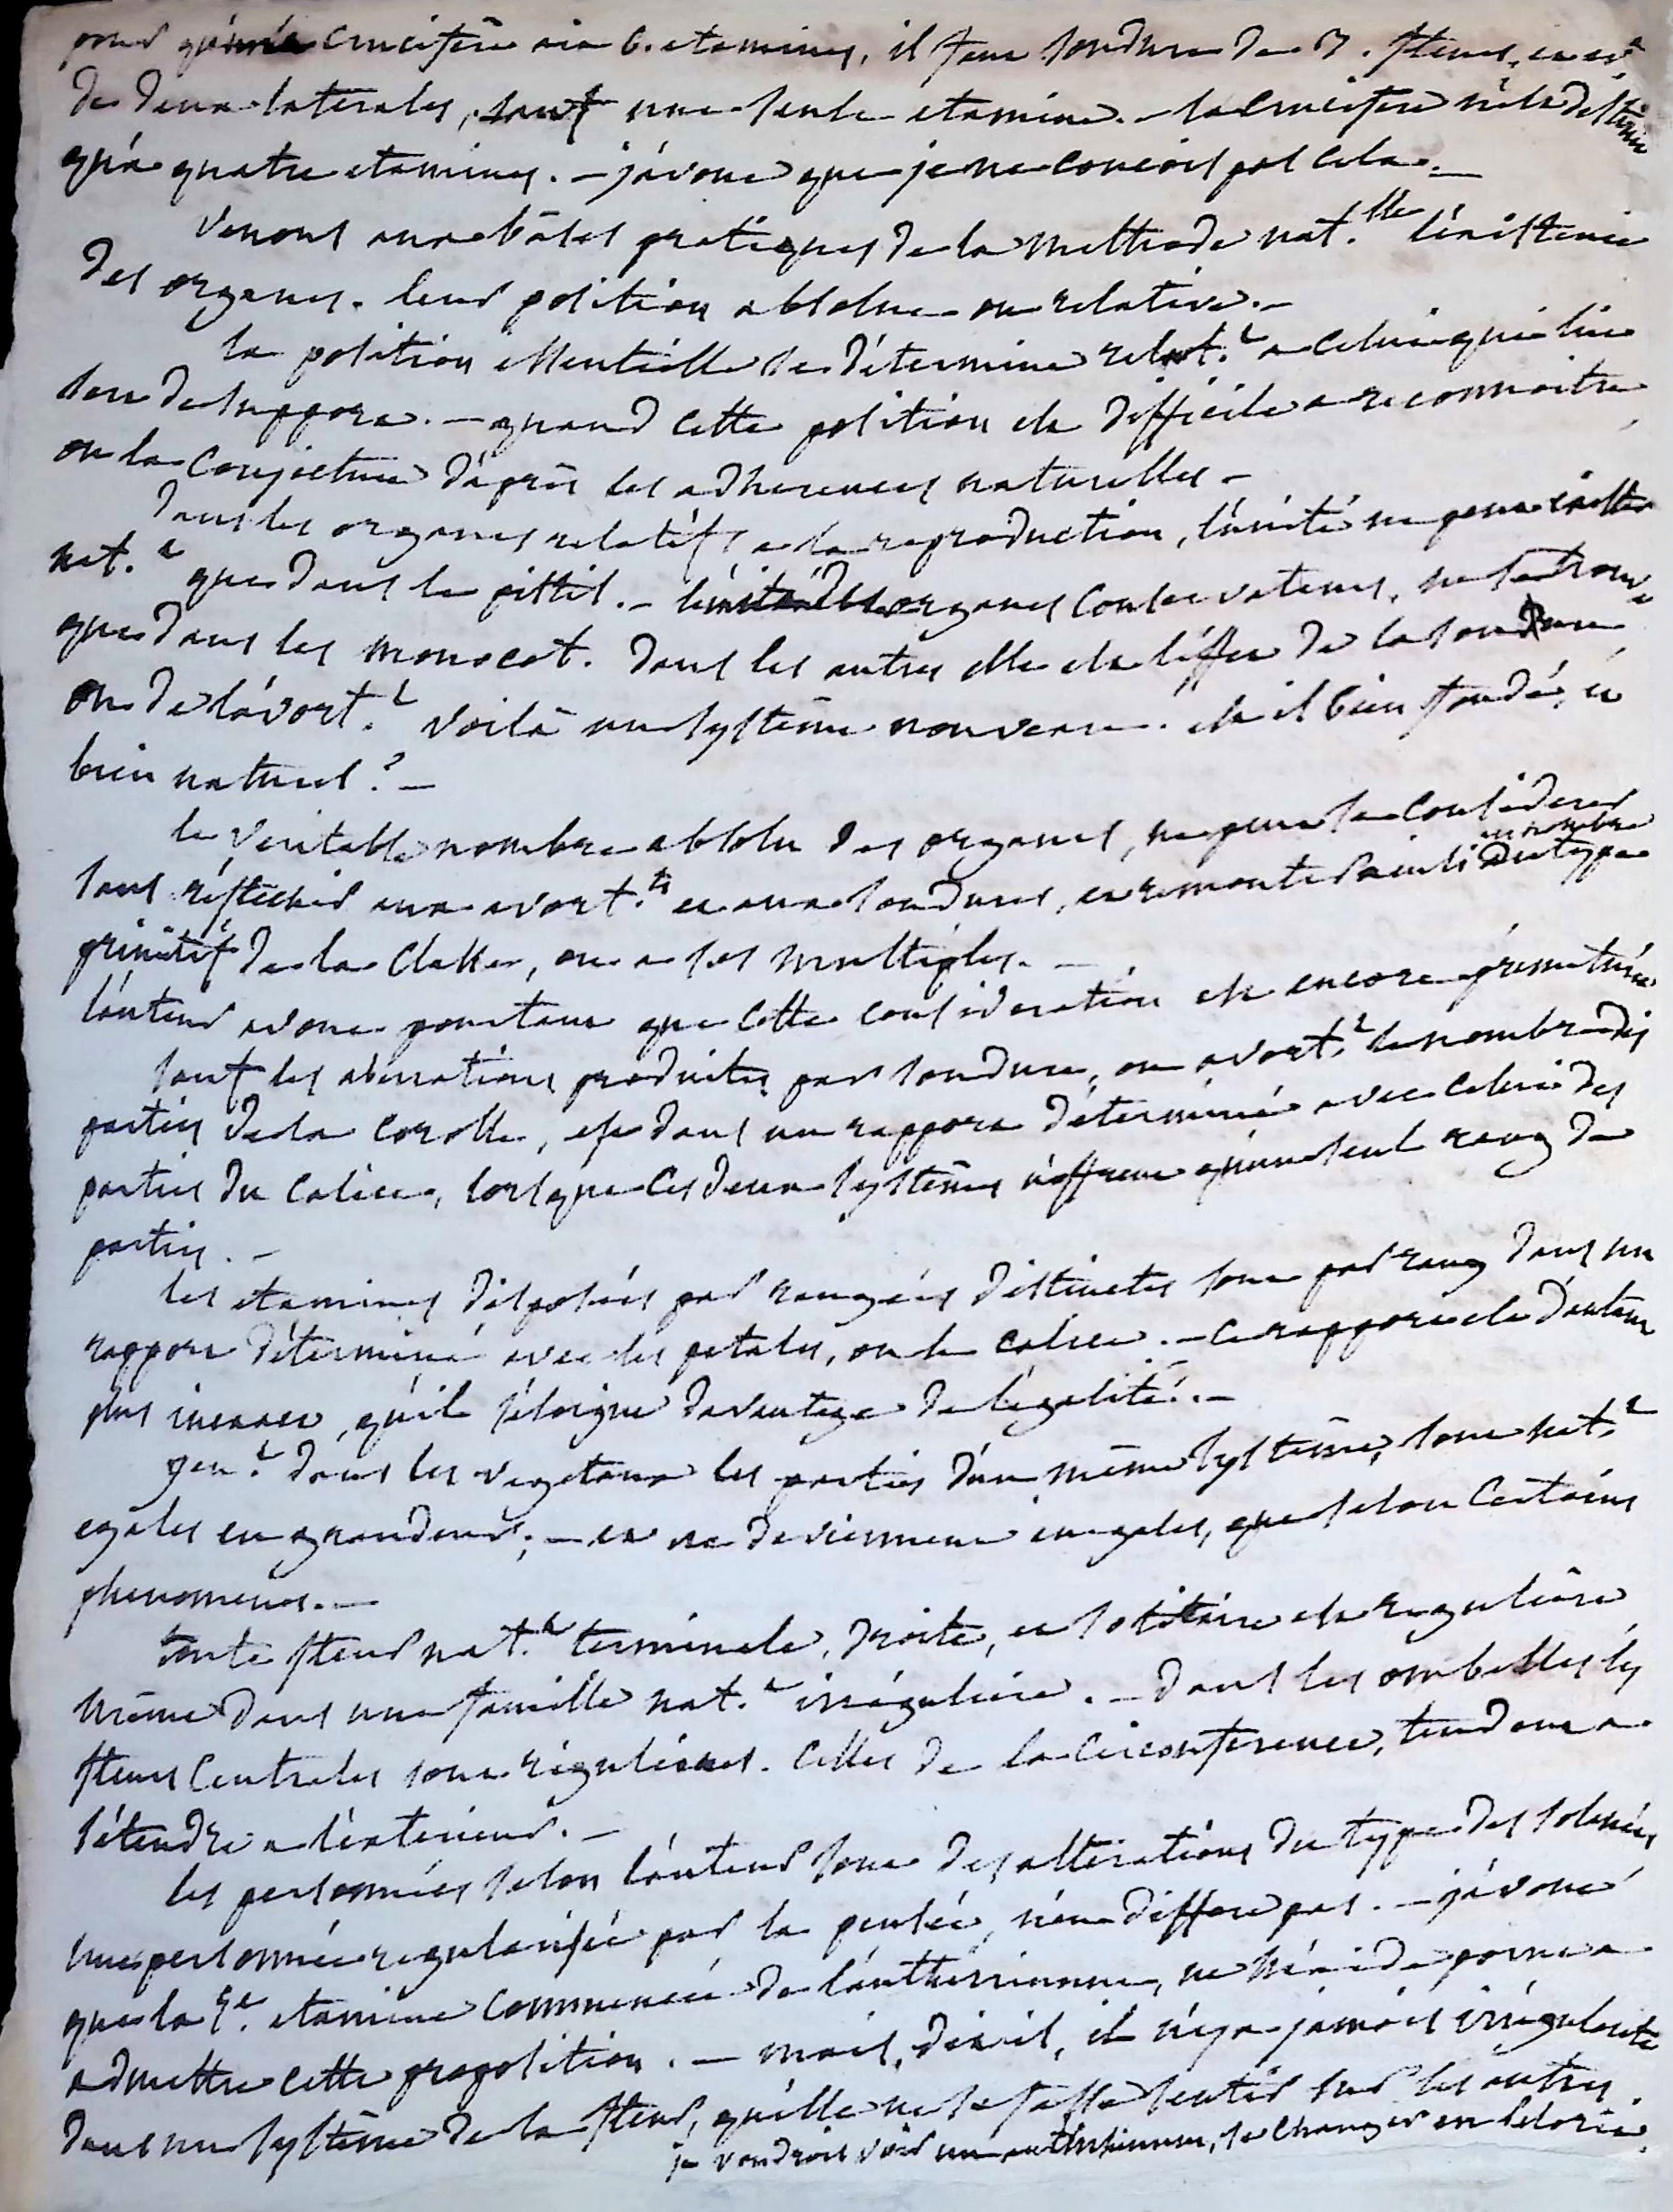 pour qu'une crucifère ait 6. etamines, il faut soudure de 3. fleurs, et est
de deux laterales, sauf une seule etamine. - la crucifère n'est destinée
qu'a quatre etamines. - j'avoue que je ne concois pas cela. -
venons aux bases pratiques de la methode nat.lle l'existence
des organes. leur position absolue ou relative. -
la position essentielle se determine relat.t a celui qui lui
sert de support. - quand cette position est difficile a reconnoitre
on la conjecture d'après les adherences naturelles -
dans les organes relatifs a la reproduction, l'unité ne peut exister
nat.t que dans le pistil. - l'unité des organes conservateurs, ne se trouve
que dans les monocot. dans les autres elle est l'effet de la soudure
ou de l'avort.t voilà un systême nouveau. est il bien fondé, et
bien naturel ? -
le veritable nombre absolu des organes, ne peut se considerer
sans réfléchir aux avort.ts et aux soudures, et remonter ainsi au nombre du type
primitif de la classe, ou a ses multiples. -
l'auteur avoue pourtant que cette consideration est encore prematurée
sauf les aberrations produites par soudure, ou avort.t le nombre des
parties de la corolle, est dans un rapport déterminé avec celui des
parties du calice, lorsque ces deux systêmes n'offrent qu'un seul rang de
parties. -
les etamines disposées par rangées distinctes sont par rang dans un
rapport déterminé avec les petales, ou le calice. - ce rapport est d'autant
plus inexact, qu'il s'eloigne davantage de l'egalité. -
gen.t dans les vegetaux les parties d'un même systême, sont nat.t
egales en grandeur; - et ne deviennent inegales, que selon certains
phenomenes. -
toute fleur nat.t terminale, droite, et solitaire est reguliere
même dans une famille nat.t irréguliere. - dans les ombelles les
fleurs centrales sont régulières. celles de la circonference, tendent a
s'étendre a l'exterieur. -
les personnées selon l'auteur sont des alterations du type des solanées
une personnée regularisée par la pensée, n'en differe pas. - j'avoue
que la 5e. etamine commencée de l'anthirrinum, ne m'aide point a
admettre cette proposition. - mais, dit-il, il n'y a jamais irrégularité
dans un systême de la fleur, qu'elle ne se fasse sentir sur les autres.
je voudrois voir un anthirrinum, se changer en peloria.